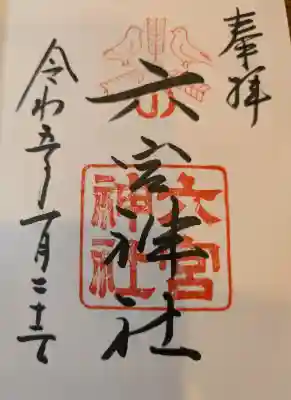 奉拝
六宮神社
六宮
神社
令和五年一月二十